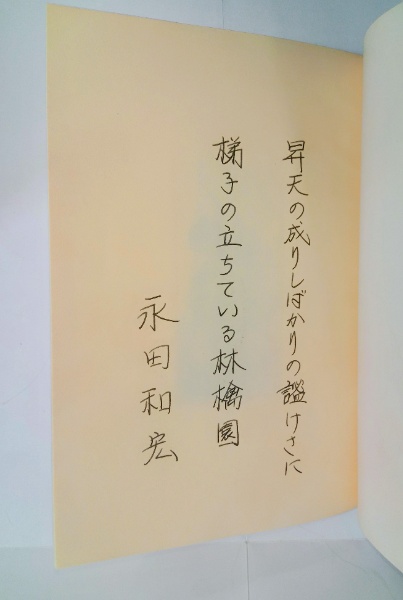 昇天の成りしばかりの謐けさに
梯子の立ちている林檎園
永田和宏